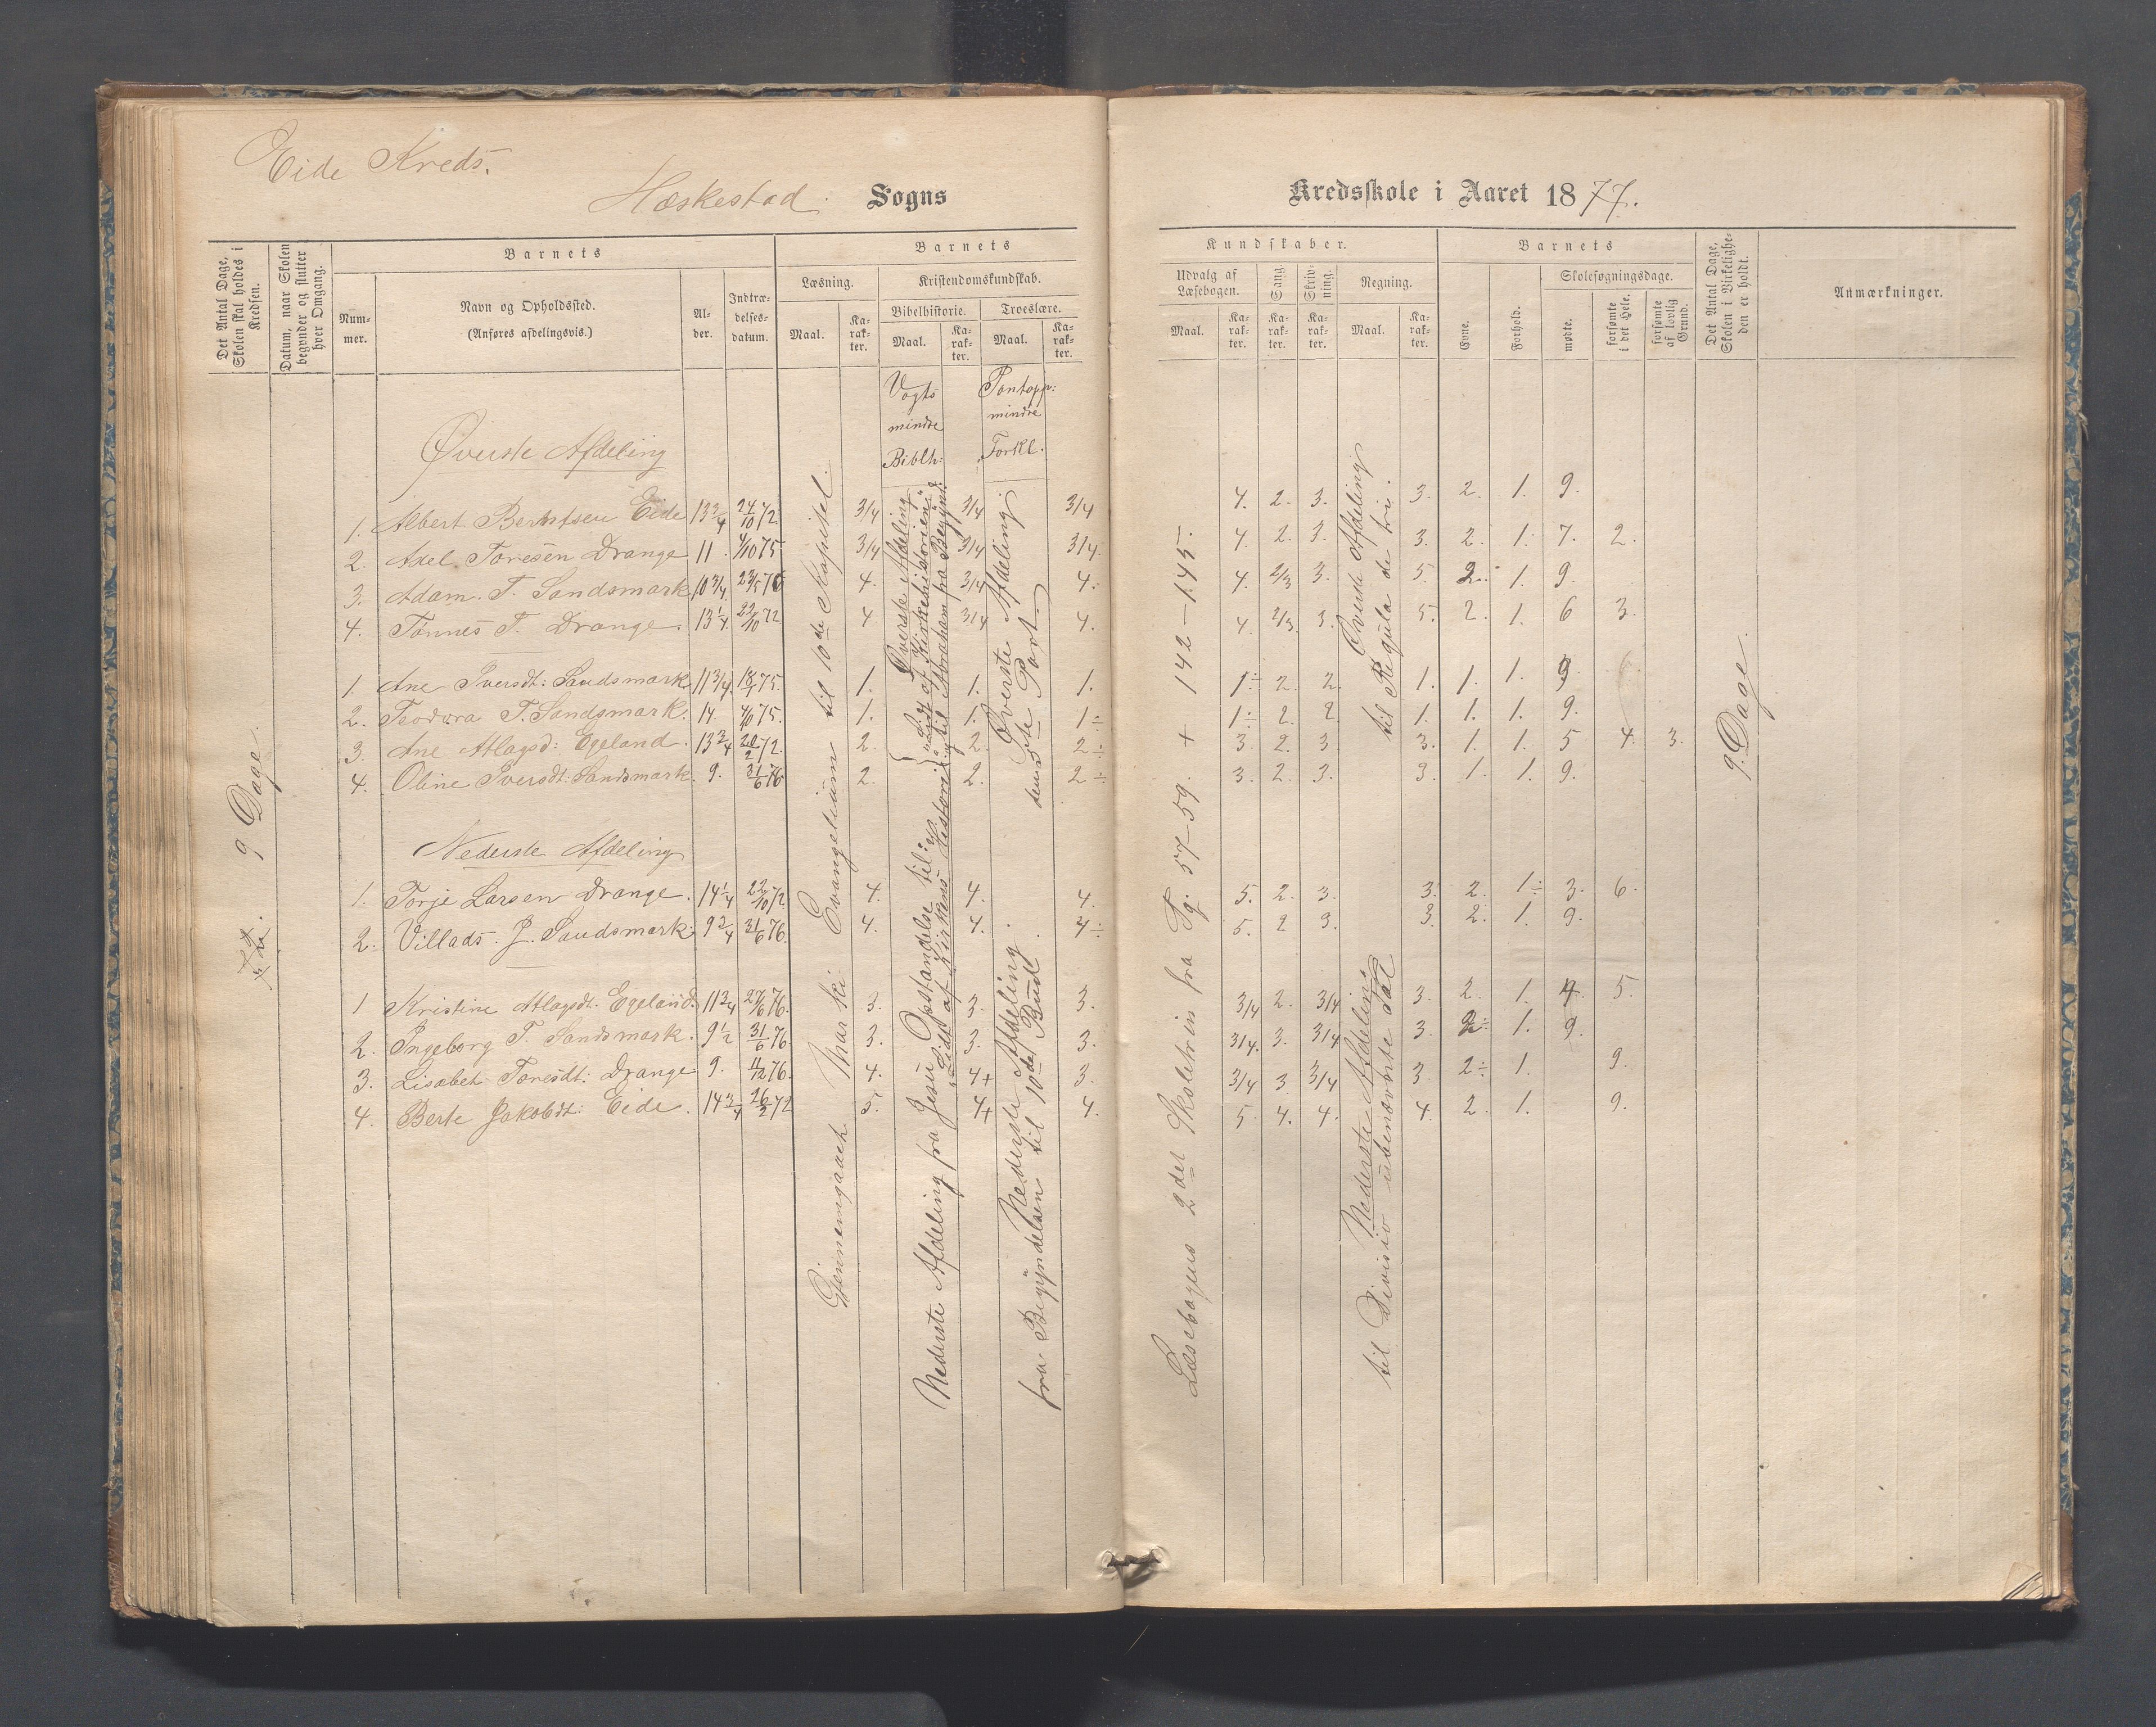 Eide Kreds.
Hæskestad Sogns
Kredsskole i Aaret 1877.
Det Antal Dage, Skolen skal holdes i Kredsen.
Datum, naar Skolen begynder og slutter hver Omgang.
Barnets
Num-
mer.
Navn og Opholdssted.
(Anføres afdelingsvis.)
Al-
der.
Indtræ-
delses-
datum.
Barnets
Læsning.
Maal.
Ka-
rak-
ter.
Kristendomskundskab.
Bibelhistorie.
Troeslære.
Maal.
Ka-
rak-
ter.
Maal.
Ka-
rak-
ter.
Kundskaber.
Udvalg af
Læsebogen.
Sang.
Skriv-
ning.
Regning.
Maal.
Ka-
rak-
ter.
Ka-
rak-
ter.
Ka-
rak-
ter.
Maal.
Ka-
rak-
ter.
Barnets
Evne.
Forhold.
Skolesøgningsdage.
mødte.
forsømte i det Hele.
forsømte af lovlig Grund.
Det Antal Dage, Skolen i Virkeligheden er holdt.
Anmærkninger.
Vogts
mindre
Biblh:
Pontopp:
mindre
Forkl.
Øverste Afdeling
1. Albert Berntsen Eide 13 3/4 24/10 72 3/4 3/4 3/4 4. 2. 3. 3. 2. 1. 9.
2. Adel Toresen Drange 11. 4/10 75 3/4 3/4 3/4. 4. 2. 3. 3. 2. 1. 7. 2.
3. Adam. T. Sandsmark 10 3/4 4. 3/4 4. 4. 2/3 3. 5. 2. 1. 9.
4. Tønnes T. Drange. 13 1/4 22/10 72 4 3/4 4. 4. 2/3. 3. 5. 2. 1. 6 3.
1. Ane Iversdt: Sandsmark 11 3/4. 1. 1. 1. 1÷ 2. 2. 1. 1. 1. 9
2. Teodora T. Sandsmark. 14. 4/10 75. 1. 1. 1÷ 1÷ 2. 2. 1. 1. 1. 9.
3. Ane Atlagsd: Egeland. 13 3/4 20/2 72. 2. 2. 2÷ 3. 2. 3. 3. 1. 1. 5 4. 3.
4. Oline Iversdt: Sandsmark. 9. 31/6 76 2. 2. 2÷ 3. 2. 3. 3. 1. 1. 9.
Nederste Afdeling
1. Torje Larsen Drange. 14 1/4 22/10 72 4. 4. 4. 5. 2. 3. 3. 2. 1÷ 3. 6.
2. Villads. J. Sandsmark. 9 3/4 31/6 76. 4. 4. 4÷ 5. 2 3. 3. 2. 1. 9.
1 Kristine Atlagsdt. Egeland. 11 3/4 27/6 76. 3. 3. 3. 3/4 2. 3/4 3. 2. 1. 4. 5.
2. Ingeborg T. Sandsmark. 9 1/2 31/6 76 3. 3. 3. 3/4. 3. 3/4 3. 2÷ 1. 9.
3. Lisabet Toresdt: Drange 9. 4/12 76. 4. 4+ 3. 3/4 3 3/4 3. 2÷ 1. 9.
4. Berte Jakobdt: Eide. 14 3/4 26/2 72 5. 4+ 4. 5. 4. 4. 4. 2. 1. 9.
9 Dage.
Gjennemgaaet Marki Evangelium til 10de Kapitel.
Øverste Afdeling
"Lidt af Kirkehistorien"
til Abraham fra Begynd:
Nederste Afdeling fra Jesu Opstandelse til:
"Lidt af Kirkens Historie"
Øverste Afdeling
den 5te Part
Nederste Afdeling.
fra Begyndelsen til 10de Bud.
Læsebogens 2det Skoletrin fra Pg. 57-59. + 142-145.
Øverste Afdeling
til Regula de tri.
Nederste Afdeling
til Division ubenævnte Tal
9. Dage.